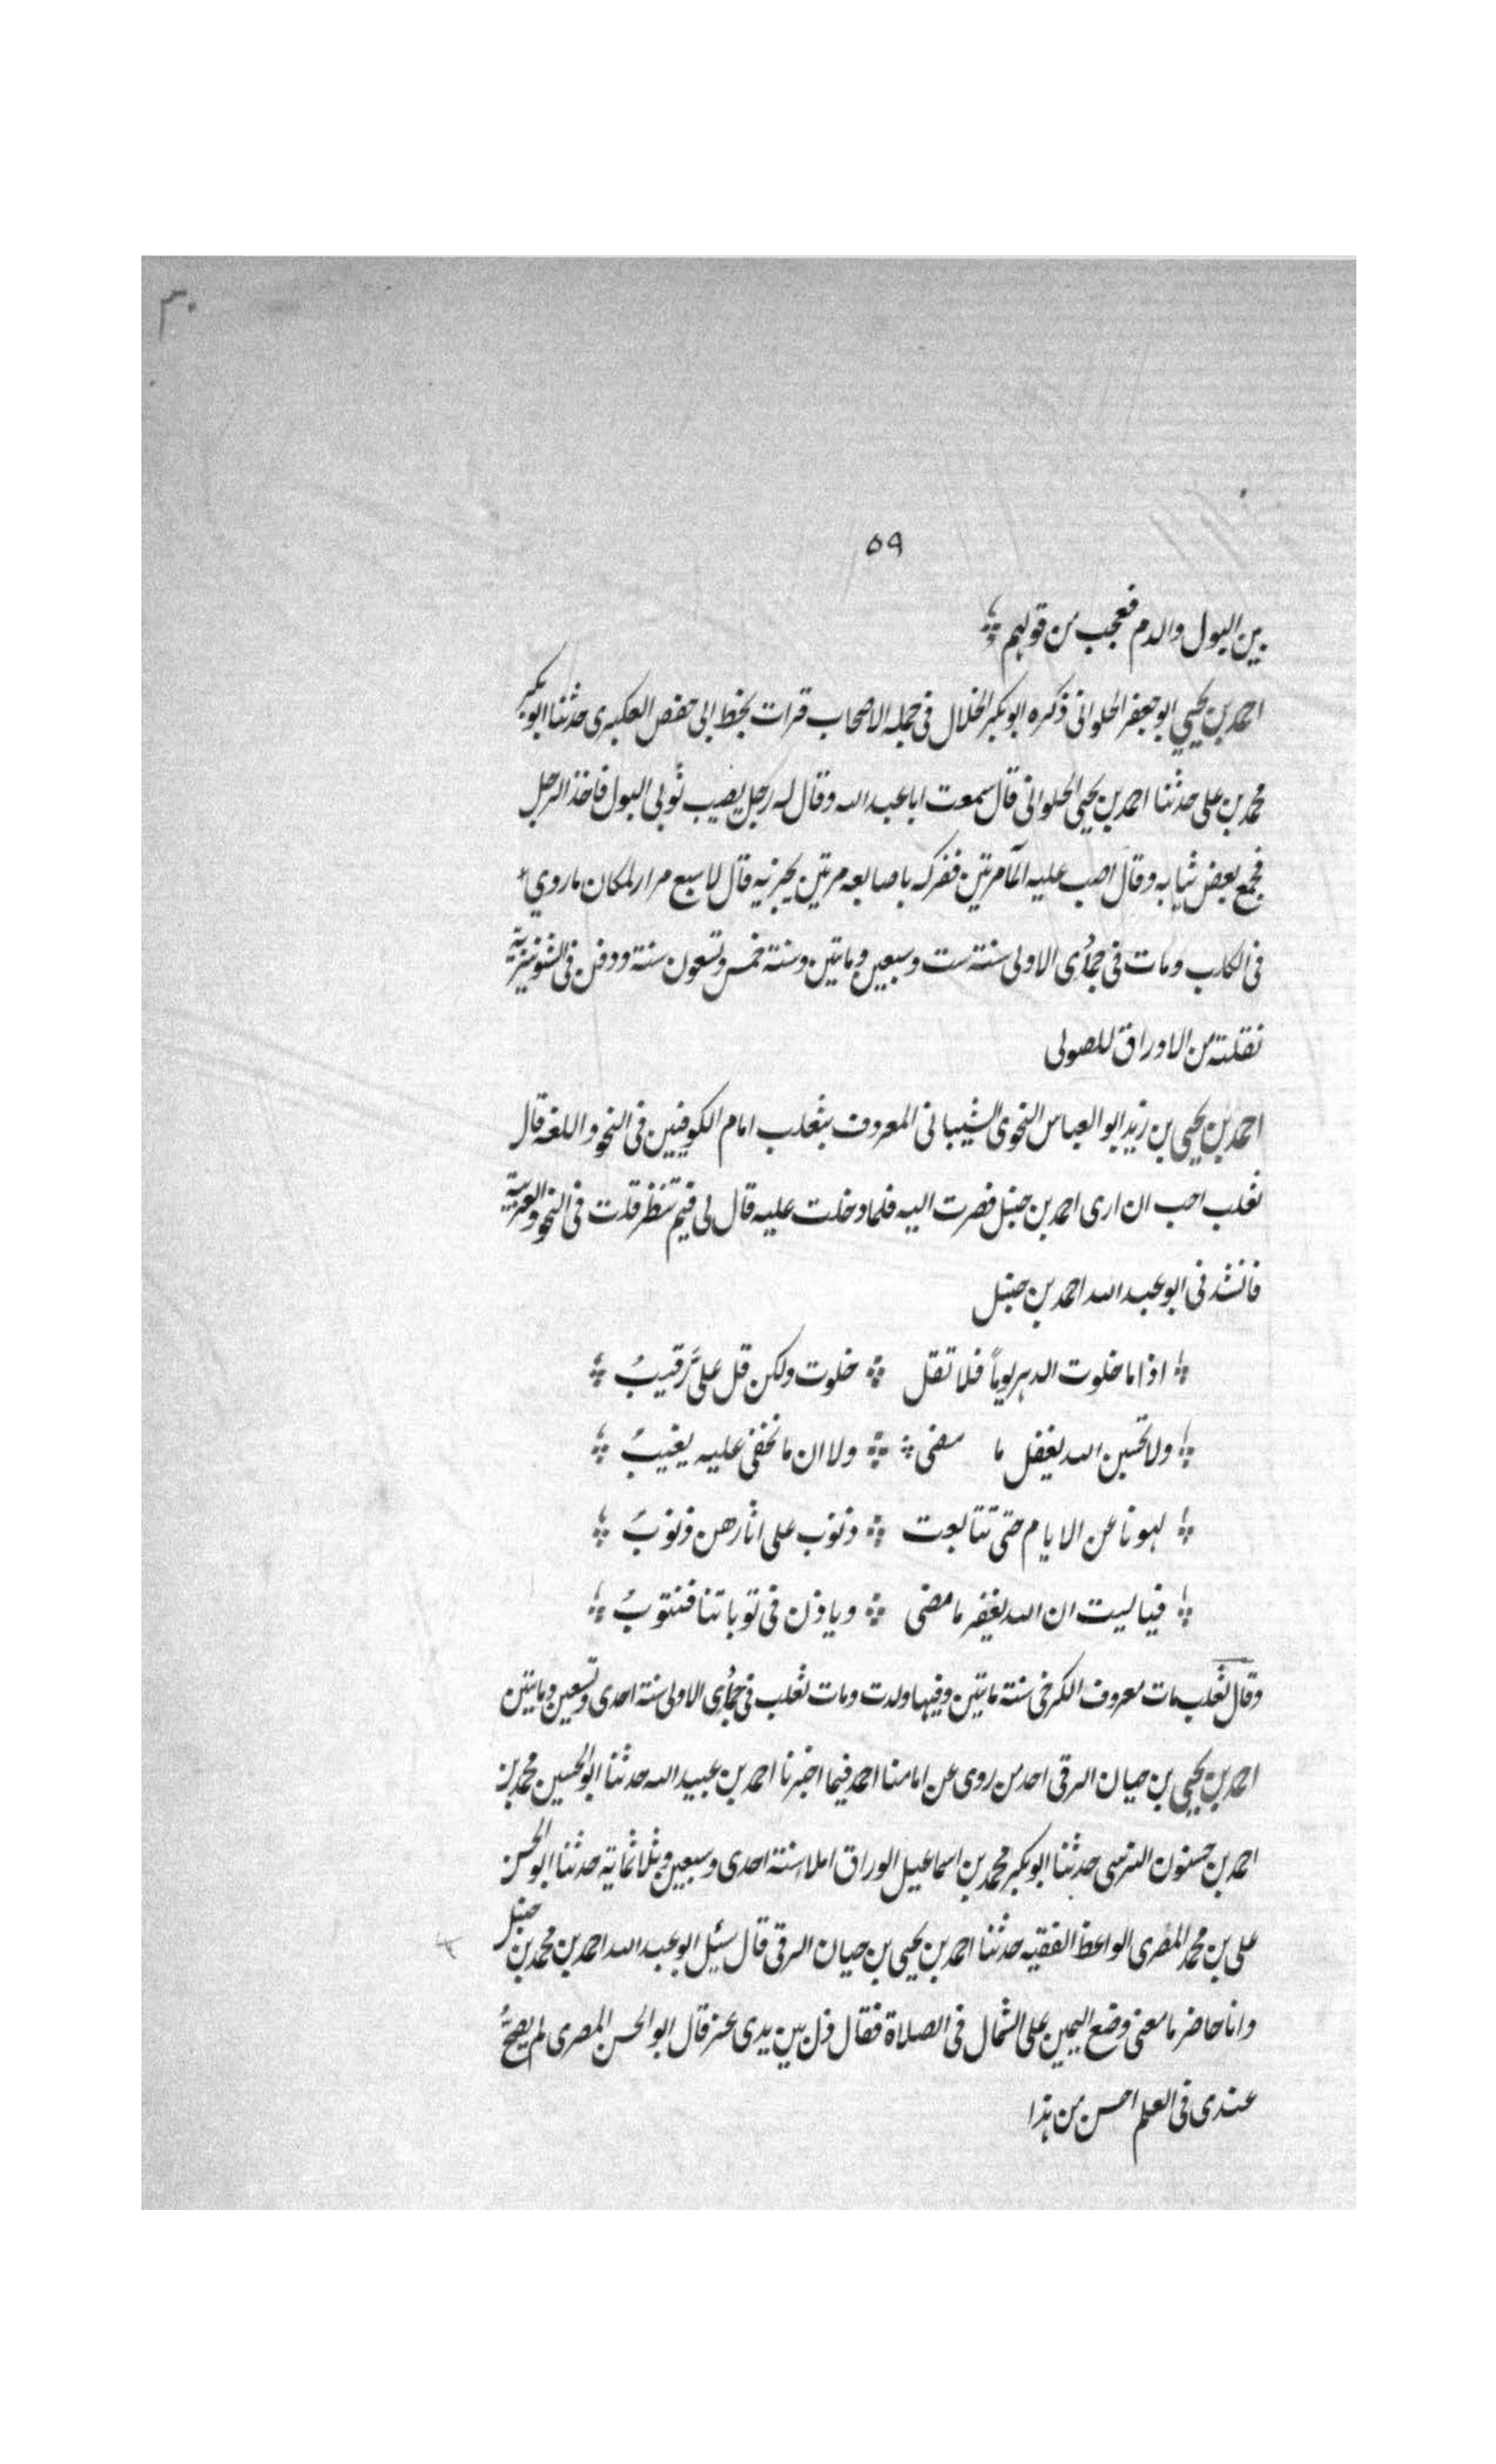 ٣٠
٥٩
بين البول والدم فعجب من قولهم
احمد بن يحيي ابو جعفر الحلوانى ذكره ابو بكر الخلال فى جمله الاصحاب قرات بخط ابى حفص العكبرى حدثنا ابو بكر
محمد بن على حدثنا احمد بن يحيى الحلوانى قال سمعت ابا عبد الله وقال له رجل يصيب ثوبى البول فاخذ الرجل
فجمع بعض ثيابه وقال اصب عليه المآ مرتين ففركه باصابعه مرتين يجزيه قال لا سبع مرار لمكان ما روي
فى الكلب ومات فى جمادى الاولى سنة ست وسبعين وماتين وسنة خمس وتسعون سنة ودفن فى الشونيزية
نقلته من الاوراق للصولى
احمد بن يحيى بن زيد ابو العباس النحوى الشيبانى المعروف بثعلب امام الكوفيين فى النحو واللغه قال
ثعلب احب ان ارى احمد بن حنبل فصرت اليه فلما دخلت عليه قال لى فيم تنظر قلت فى النحو والعربية
فانشدنى ابو عبد الله احمد بن حنبل
اذا ما خلوت الدهر يوماً فلا تقل خلوت ولكن قل علىّ رقيبُ
ولا تحسبن الله يغفل ما مضى ولا ان ما نخفى عليه يغيبُ
لهونا عن الايام حتى تتابعت ذنوب على اثارهن ذنوبُ
فيا ليت ان الله يغفر ما مضى وياذن فى توباتنا فنتوبُ
وقال ثعلب مات معروف الكرخى سنة ماتين وفيها ولدت ومات ثعلب فى جمادى الاولى سنة احدى وتسعين وماتين
احمد بن يحيى بن حيان الرقى احد من روى عن امامنا احمد فيما اخبرنا احمد بن عبيد الله حدثنا ابو الحسين محمد بن
احمد بن حسنون النرسى حدثنا ابو بكر محمد بن اسماعيل الوراق املا سنة احدى وسبعين وثلاثماية حدثنا ابو الحسن
على بن محمد المصرى الواعظ الفقيه حدثنا احمد بن يحيى بن حيان الرقى قال سئل ابو عبد الله احمد بن محمد بن حنبل
وانا حاضر ما معنى وضع اليمين على الشمال فى الصلاة فقال ذل بين يدى عز قال ابو الحسن المصرى لم يصحّ
عندى فى العلم احسن من هذا